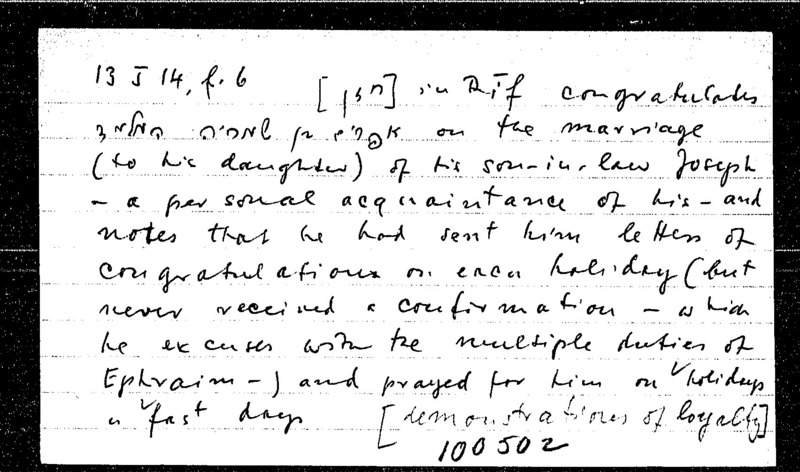 13 J 14, f. 6 [חזן] in Rīf congratulates
אפרים בן שמריה המלמד on the marriage
(to his daughter) of his son-in-law Joseph
– a personal acquaintance of his – and
notes that he had sent him letters of
congratulations on each holiday (but
never received a confirmation – which
he excuses with the multiple duties of
Ephraim –) and prayed for him on holidays
a fast days [demonstrations of loyalty]
100502